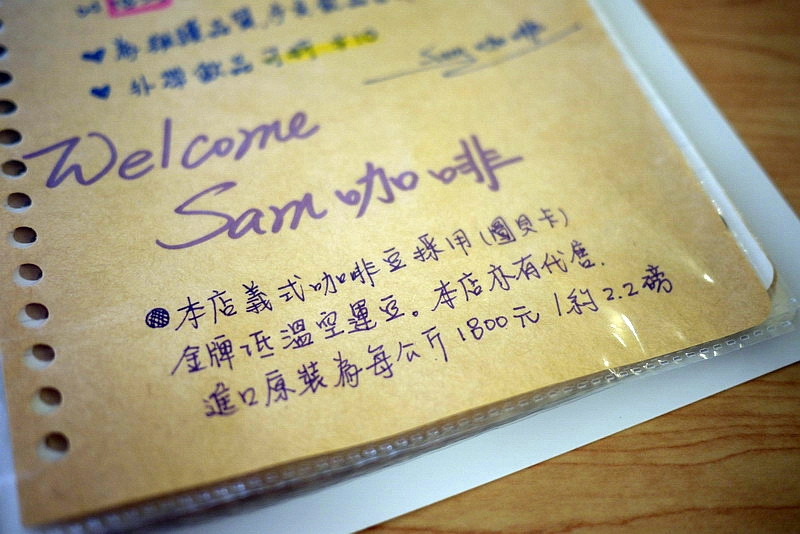 為維護品質,
外帶飲品
Sam 咖啡
Welcome
Sam 咖啡
本店義式咖啡豆採用(圖貝卡)
金牌低溫空運豆。本店亦有代售.
進口原裝為每公斤1800元/約2.2磅